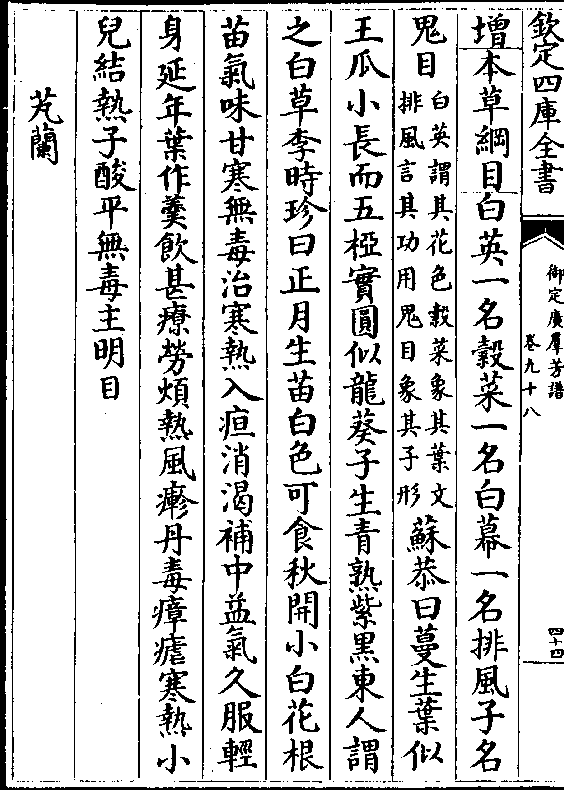 欽定四庫全書
御定廣羣芳譜
卷九十八
四十四
增本草綱目白英一名榖菜一名白幕一名排風子名
鬼目
白英謂其花色榖菜象其葉文
排風言其功用鬼目象其子形
蘇恭曰蔓生葉似
王瓜小長而五椏實圓似龍葵子生青熟紫黑東人謂
之白草李時珍曰正月生苗白色可食秋開小白花根
苗氣味甘寒無毒治寒熱入疸消渴補中益氣久服輕
身延年葉作羹飲甚療勞煩熱風瘮丹毒瘴瘧寒熱小
兒結熱子酸平無毒主明目
芄蘭